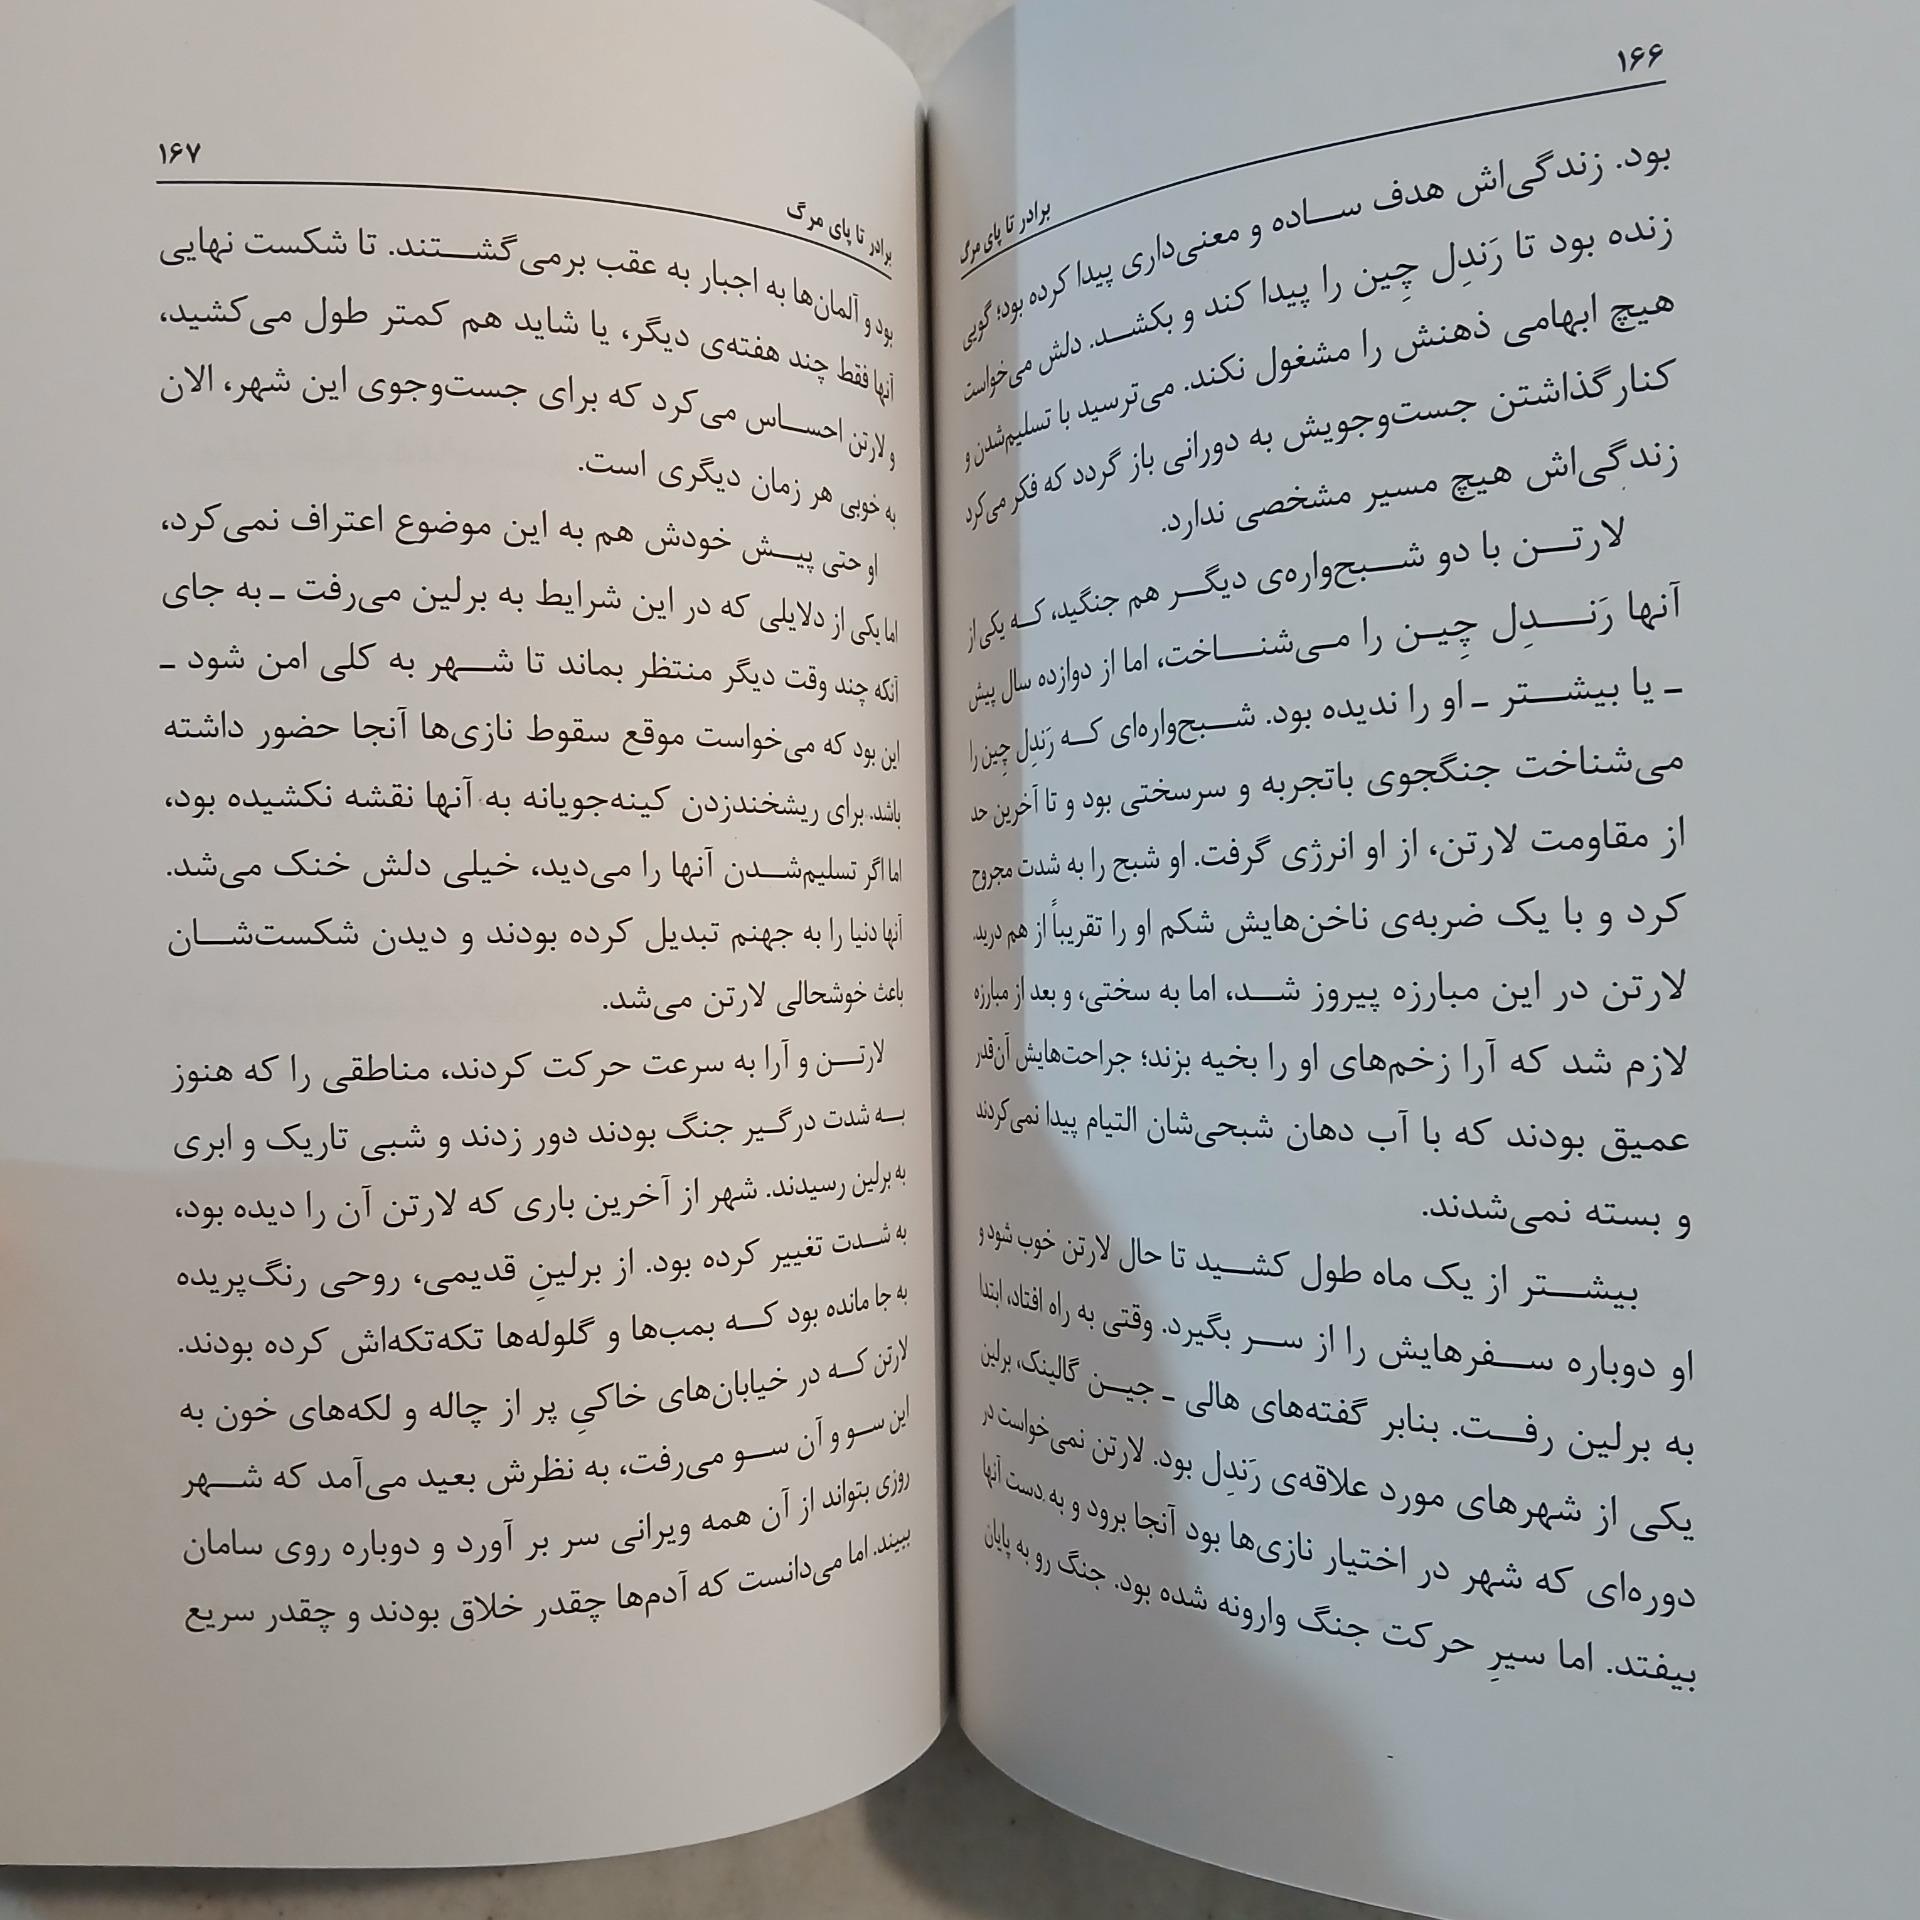 ۱۶۶
برادر تا پای مرگ
بود. زندگی‌اش هدف ساده و معنی‌داری پیدا کرده بود؛ گویی
زنده بود تا رَندِل چِین را پیدا کند و بکشد. دلش می‌خواست
هیچ ابهامی ذهنش را مشغول نکند. می‌ترسید با تسلیم‌شدن و
کنار گذاشتن جست‌وجویش به دورانی باز گردد که فکر می‌کرد
زندگی‌اش هیچ مسیر مشخصی ندارد.
لارتن با دو شبح‌واره‌ی دیگر هم جنگید، که یکی از
آنها رَندِل چِین را می‌شناخت، اما از دوازده سال پیش
ـ یا بیشتر ـ او را ندیده بود. شبح‌واره‌ای که رَندِل چِین را
می‌شناخت جنگجوی باتجربه و سرسختی بود و تا آخرین حد
از مقاومت لارتن، از او انرژی گرفت. او شبح را به شدت مجروح
کرد و با یک ضربه‌ی ناخن‌هایش شکم او را تقریباً از هم درید.
لارتن در این مبارزه پیروز شد، اما به سختی، و بعد از مبارزه
لازم شد که آرا زخم‌های او را بخیه بزند؛ جراحت‌هایش آن‌قدر
عمیق بودند که با آب دهان شبحی‌شان التیام پیدا نمی‌کردند
و بسته نمی‌شدند.
بیشتر از یک ماه طول کشید تا حال لارتن خوب شود و
او دوباره سفرهایش را از سر بگیرد. وقتی به راه افتاد، ابتدا
به برلین رفت. بنابر گفته‌های هالی ـ جین گالینک، برلین
یکی از شهرهای مورد علاقه‌ی رَندِل بود. لارتن نمی‌خواست در
دوره‌ای که شهر در اختیار نازی‌ها بود آنجا برود و به دست آنها
بیفتد. اما سیرِ حرکت جنگ وارونه شده بود. جنگ رو به پایان
۱۶۷
برادر تا پای مرگ
بود و آلمان‌ها به اجبار به عقب برمی‌گشتند. تا شکست نهایی
آنها فقط چند هفته‌ی دیگر، یا شاید هم کمتر طول می‌کشید،
و لارتن احساس می‌کرد که برای جست‌وجوی این شهر، الان
به خوبی هر زمان دیگری است.
او حتی پیش خودش هم به این موضوع اعتراف نمی‌کرد،
اما یکی از دلایلی که در این شرایط به برلین می‌رفت ـ به جای
آنکه چند وقت دیگر منتظر بماند تا شهر به کلی امن شود ـ
این بود که می‌خواست موقع سقوط نازی‌ها آنجا حضور داشته
باشد. برای ریشخندزدن کینه‌جویانه به آنها نقشه نکشیده بود،
اما اگر تسلیم‌شدن آنها را می‌دید، خیلی دلش خنک می‌شد.
آنها دنیا را به جهنم تبدیل کرده بودند و دیدن شکست‌شان
باعث خوشحالی لارتن می‌شد.
لارتن و آرا به سرعت حرکت کردند، مناطقی را که هنوز
به شدت درگیر جنگ بودند دور زدند و شبی تاریک و ابری
به برلین رسیدند. شهر از آخرین باری که لارتن آن را دیده بود،
به شدت تغییر کرده بود. از برلینِ قدیمی، روحی رنگ‌پریده
به جا مانده بود که بمب‌ها و گلوله‌ها تکه‌تکه‌اش کرده بودند.
لارتن که در خیابان‌های خاکیِ پر از چاله و لکه‌های خون به
این سو و آن سو می‌رفت، به نظرش بعید می‌آمد که شهر
روزی بتواند از آن همه ویرانی سر بر آورد و دوباره روی سامان
ببیند. اما می‌دانست که آدم‌ها چقدر خلاق بودند و چقدر سریع